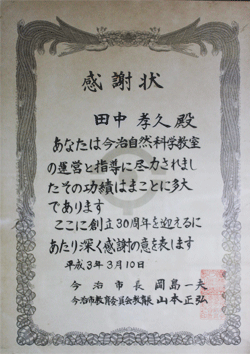 感謝状
田中孝久殿
あなたは今治自然科学教室
の運営と指導に尽力されまし
たその功績はまことに多大
であります
ここに創立30周年を迎えるに
あたり深く感謝の意を表します
平成3年3月10日
今治市長 岡島一夫
今治市教育委員会教育長 山本正弘